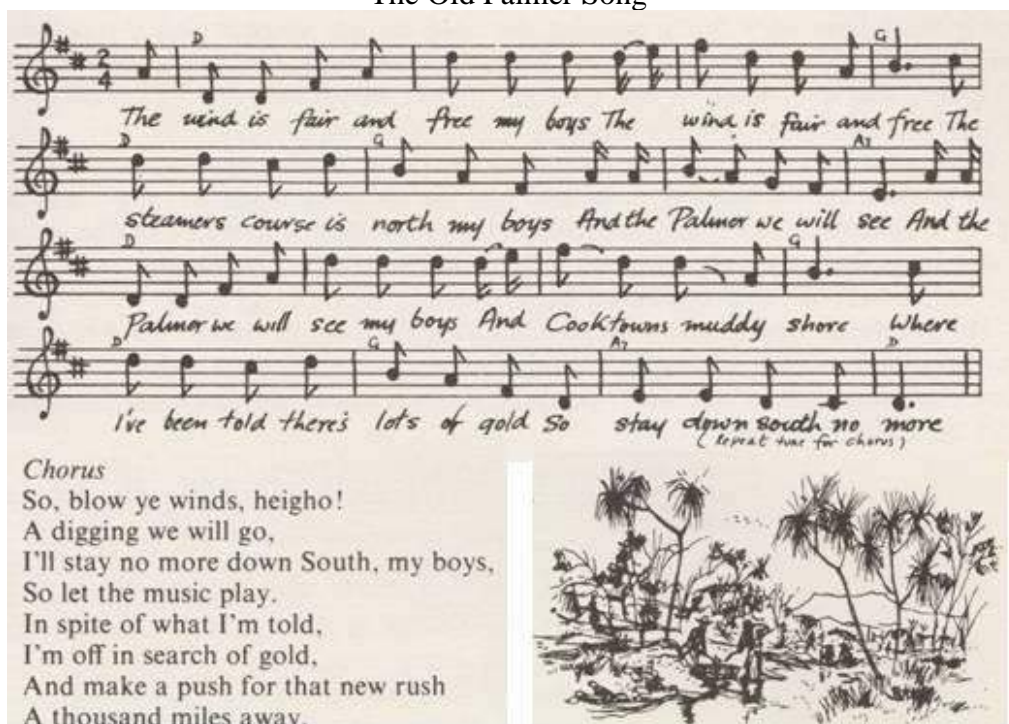 The Old Palmer Song
D G
2 4
The wind is fair and free my boys The wind is fair and free The
D G A7
steamers course is north my boys And the Palmer we will see And the
D G
Palmer we will see my boys And Cooktowns muddy shore Where
D G A7 D
I've been told there's lots of gold So stay down south no more
(Repeat tune for chorus)
Chorus
So, blow ye winds, heigho!
A digging we will go,
I'll stay no more down South, my boys,
So let the music play.
In spite of what I'm told,
I'm off in search of gold,
And make a push for that new rush
A thousand miles away.